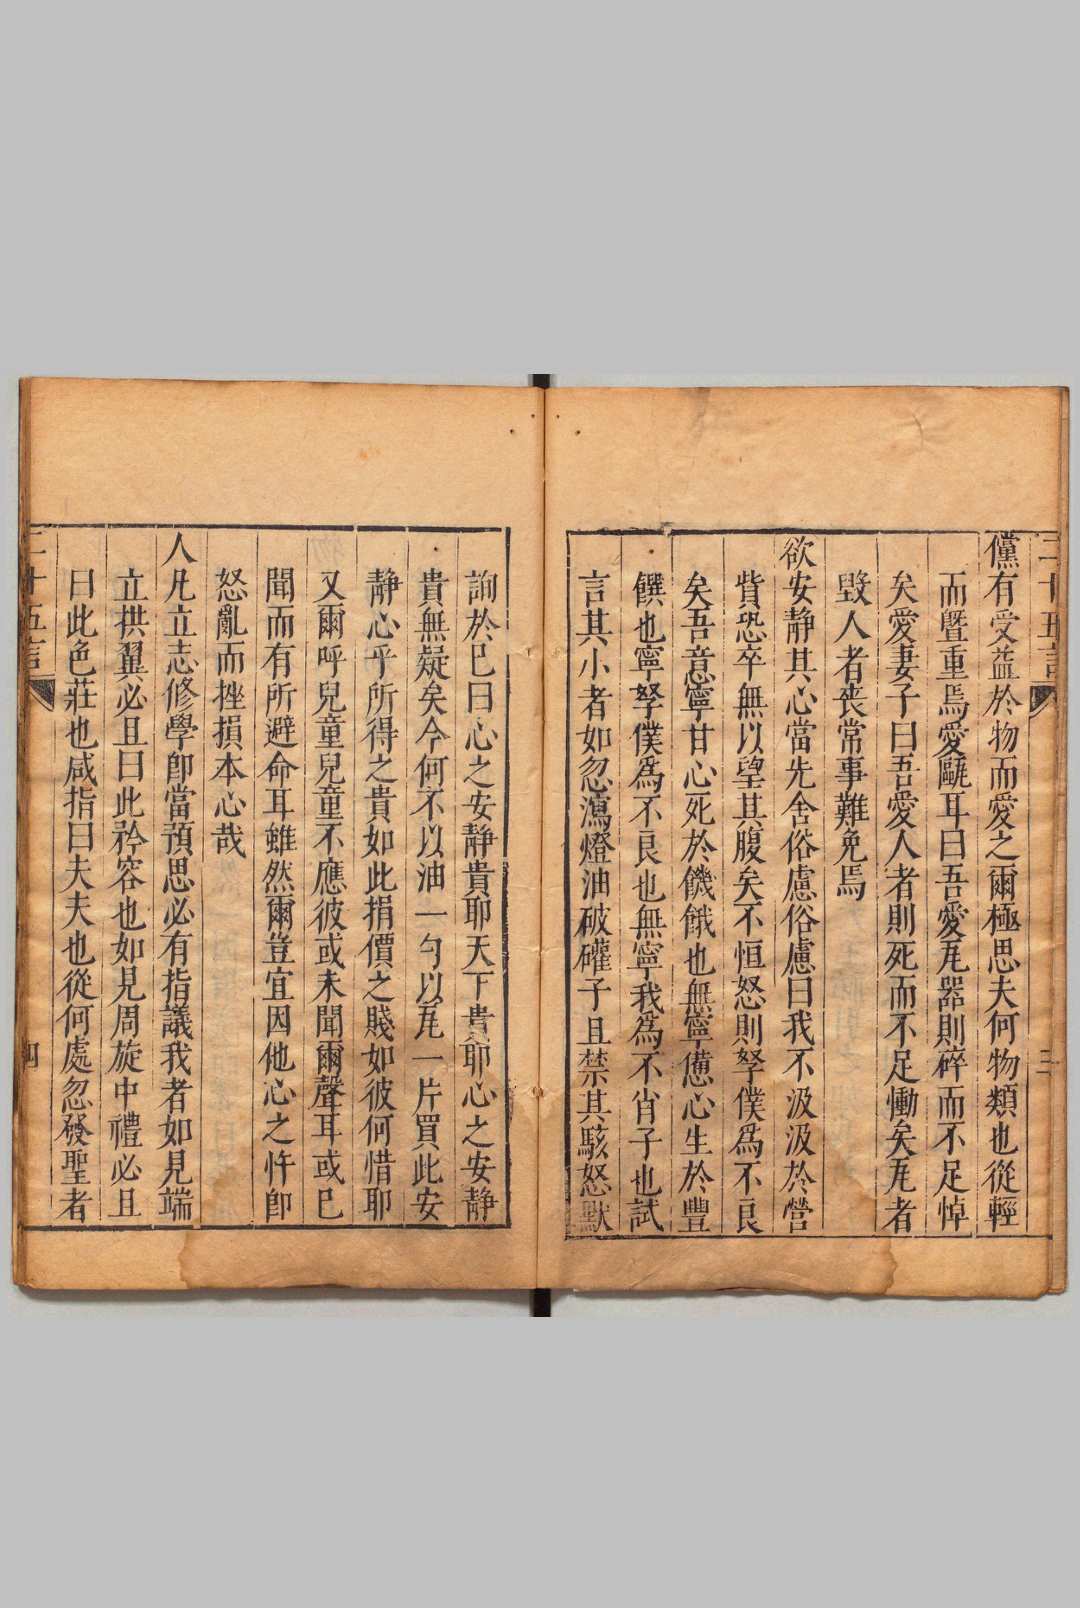 二十五言
三
儻有受益於物而愛之爾極思夫何物類也從輕
而暨重焉愛甌耳曰吾愛瓦器則碎而不足悼
矣愛妻子曰吾愛人者則死而不足慟矣瓦者
毀人者喪常事難免焉
欲安靜其心當先舍俗慮俗慮曰我不汲汲於營
貲恐卒無以望其腹矣不恒怒則孥僕為不良
矣吾意寧甘心死於饑餓也無寧憊心生於豐
饌也寧孥僕為不良也無寧我為不肖子也試
言其小者如忽瀉燈油破礶子且禁其駭怒默
詢於已曰心之安靜貴耶天下貴耶心之安靜
貴無疑矣今何不以油一勺以瓦一片買此安
靜心乎所得之貴如此捐價之賤如彼何惜耶
又爾呼兒童兒童不應彼或未聞爾聲耳或已
聞而有所避命耳雖然爾豈宜因他心之忤卽
怒亂而挫損本心哉
人凡立志修學卽當預思必有指議我者如見端
立拱翼必且曰此矜容也如見周旋中禮必且
曰此色莊也咸指曰夫夫也從何處忽發聖者
二十五言
四